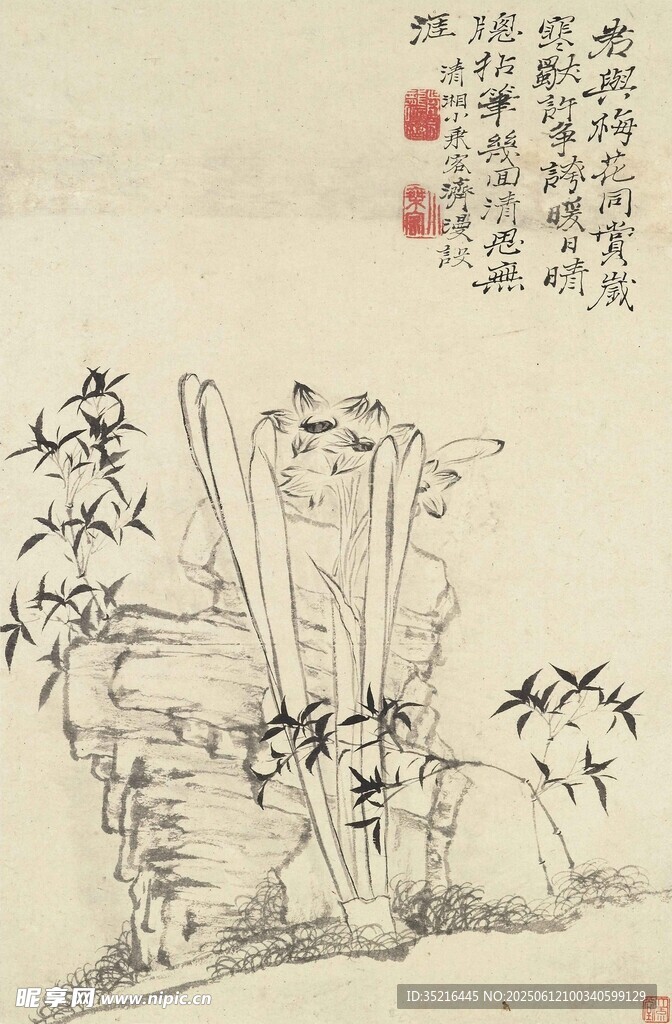 君與梅花同賞歲
寒獸許爭誇暖日晴
窻拈筆幾回清思無
涯
清湘小乘客濟漫設
昵享网 www.nipic.cn
ID:35216445 NO:20250612100340599129